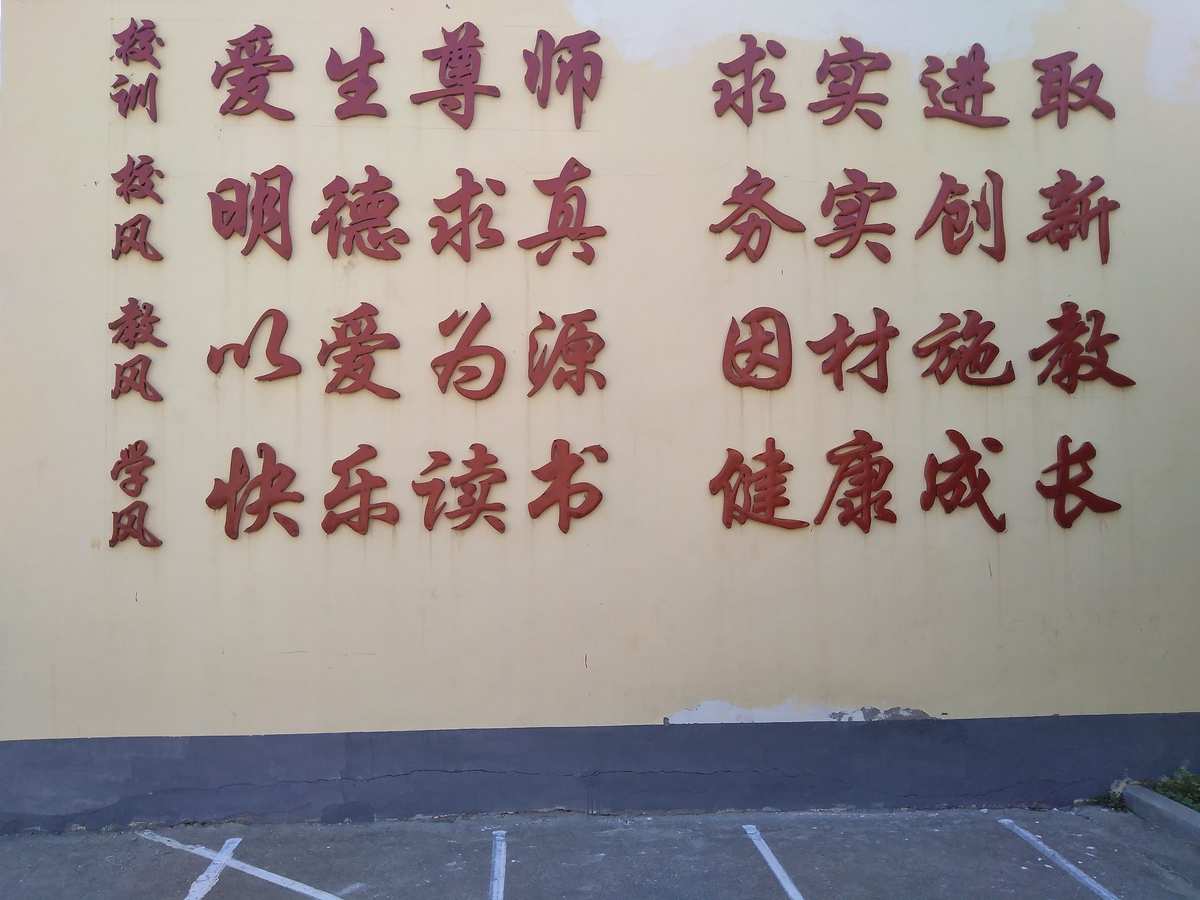 校训 爱生尊师 求实进取
校风 明德求真 务实创新
教风 以爱为源 因材施教
学风 快乐读书 健康成长